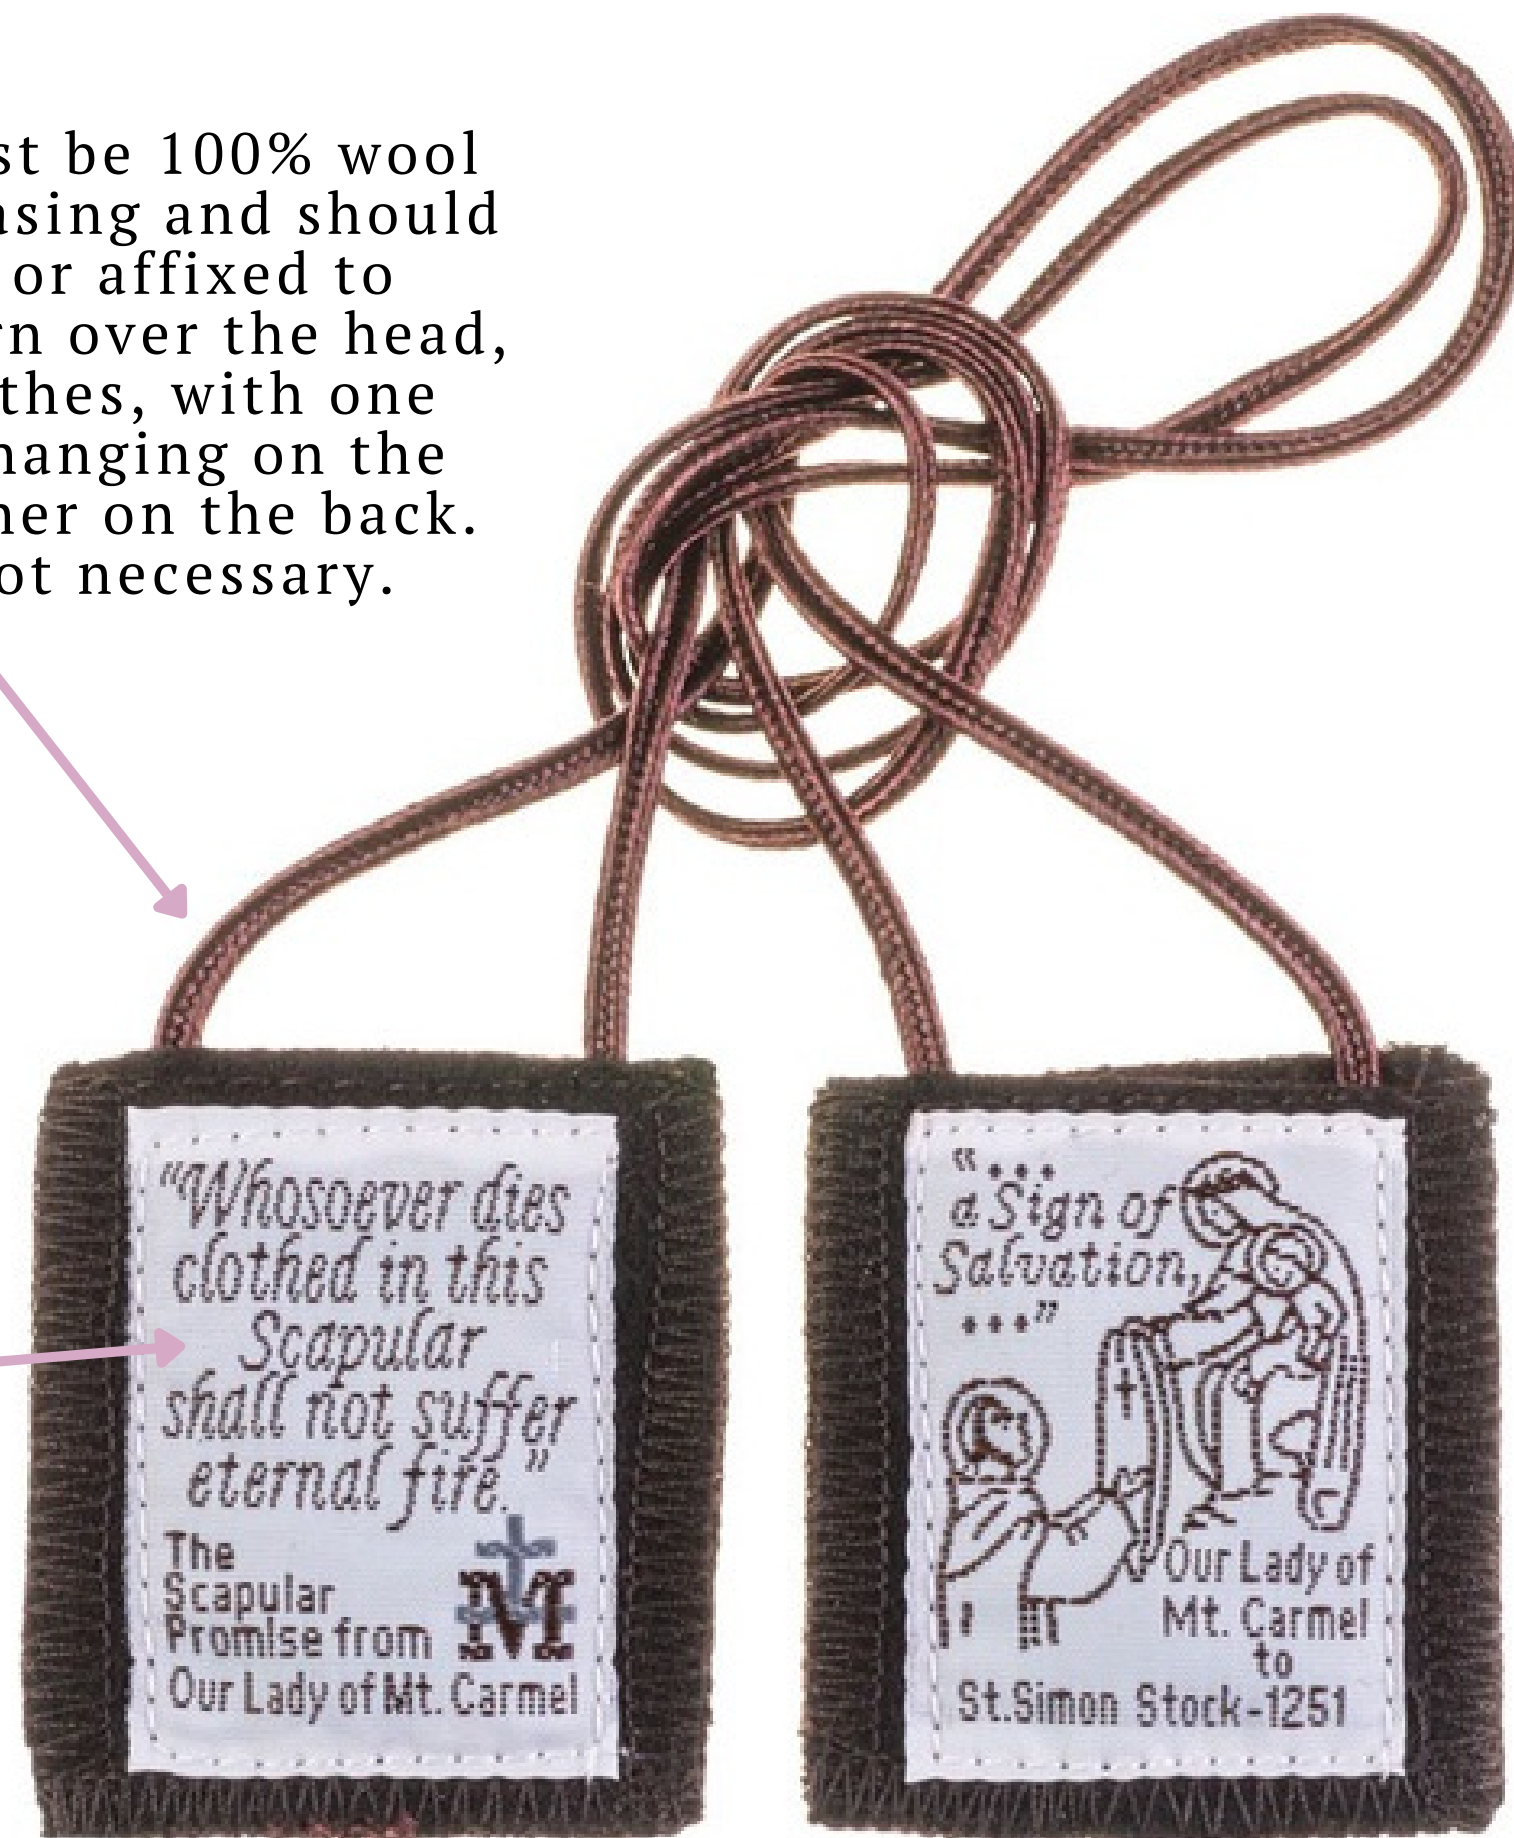 st be 100% wool
asing and should
or affixed to
rn over the head,
thes, with one
hanging on the
her on the back.
ot necessary.
“Whosoever dies
clothed in this
Scapular
shall not suffer
eternal fire.”
The
Scapular
Promise from
Our Lady of Mt. Carmel
M
“...
a Sign of
Salvation,
...”
Our Lady of
Mt. Carmel
to
St.Simon Stock-1251